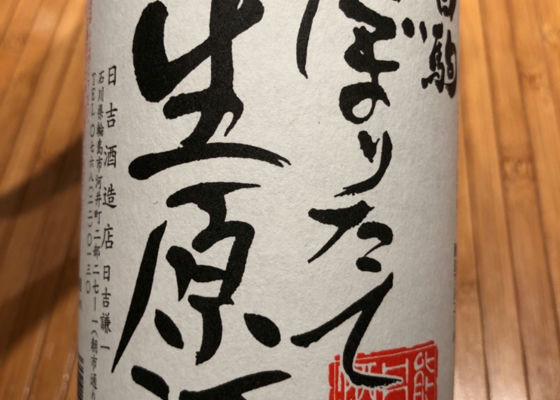 白駒
しぼりたて
生原酒
日吉酒造店 日吉謙一
石川県輪島市河井町二部二七ー一(朝市通り
TEL〇七六八(二二)〇一三〇